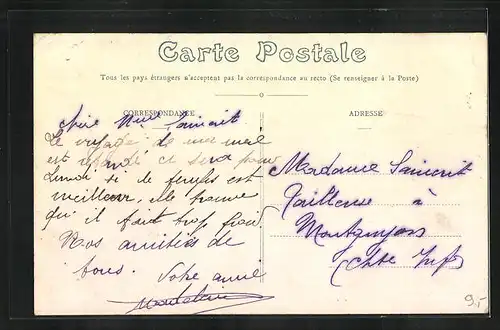 Carte Postale
Tous les pays étrangers n'acceptent pas la correspondance au recto (Se renseigner à la Poste)
CORRESPONDANCE
ADRESSE
chère Mme Sainrit
Le voyage de ma mère
est ce sera pour
Lundi si le temps est
meilleur, elle trouve
qu'il fait trop froid.
Nos amitiés de
tous. Votre amie
Madeleine
Madame Sainrit
Tailleuse à
Montguyon
Chte Infre
9,-